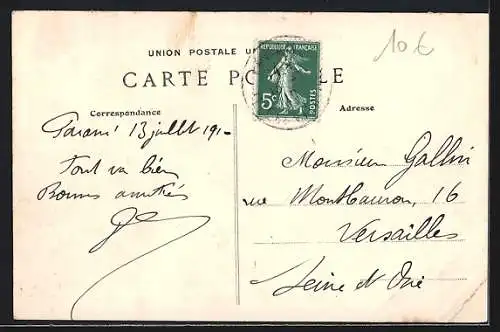 10 €
UNION POSTALE
REPUBLIQUE FRANÇAISE
5c
POSTES
CARTE POSTALE
Correspondance
Adresse
13 juillet 191
Tout va bien
Bonnes amitiés
Monsieur Gallin
rue Montbauron, 16
Versailles
Seine et Oise